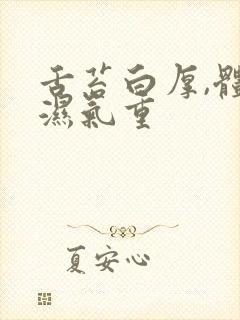 舌苔白厚,體
濕氣重
夏安心